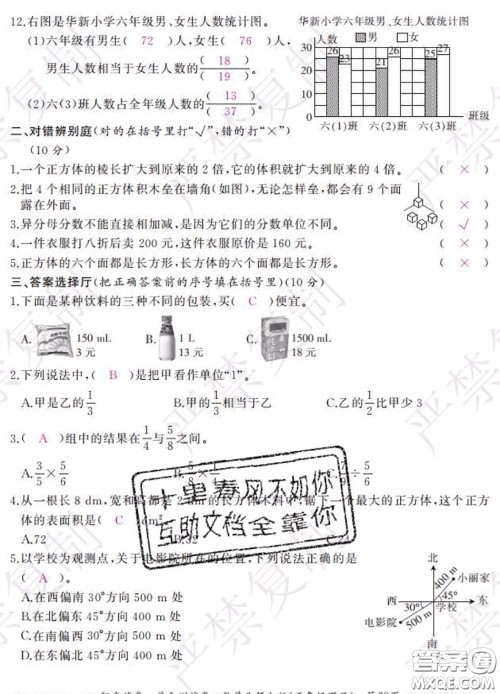 12.右图是华新小学六年级男、女生人数统计图。
(1)六年级有男生( 72 )人,女生( 76 )人,
男生人数相当于女生人数的( 18 )/( 19 )。
(2)六(3)班人数占全年级人数的( 13 )/( 37 )。
华新小学六年级男、女生人数统计图
人数 男 女
30
25
20
15
10
5
0
26 23 21 26 25 27
六(1)班 六(2)班 六(3)班 班级
二、对错辨别庭(对的在括号里打“√”,错的打“×”)
(10分)
1.一个正方体的棱长扩大到原来的2倍,它的体积就扩大到原来的4倍。 ( × )
2.把4个相同的正方体积木垒在墙角(如图),无论怎样垒,都会有9个面
露在外面。 ( × )
3.异分母分数不能直接相加减,是因为它们的分数单位不同。 ( √ )
4.一件衣服打八折后卖200元,这件衣服原价是160元。 ( × )
5.正方体的六个面都是长方形,长方体的六个面都是长方形。 ( × )
三、答案选择厅(把正确答案前的序号填在括号里)(10分)
1.下面是某种饮料的三种不同的包装,买( C )便宜。
A. 150 mL 3元 B. 1 L 13元 C. 1500 mL 18元
2.下列说法中,( B )是把甲看作单位“1”。
A.甲是乙的1/3 B.甲的1/2相当于乙 C.乙的1/2比甲少3
3.( A )组中的结果在1/4与5/8之间。
A.3/5×5/6 ÷5/6
4.从一根长8 dm,宽和 最大的正方体,这个正方
体的表面积是( C
A.72
5.以学校为观测点,关于电影院所在的位置,下列说法正确的是
( A )。
A.在西偏南30°方向500 m处
B.在北偏东45°方向400 m处
C.在南偏西30°方向500 m处
D.在东偏北45°方向400 m处
北
小丽家
400 m
45°
西 学校 东
30°
电影院 500 m
南
十里春风不如你
互助文档全靠你
严禁复制
答案圈
MXQE.COM